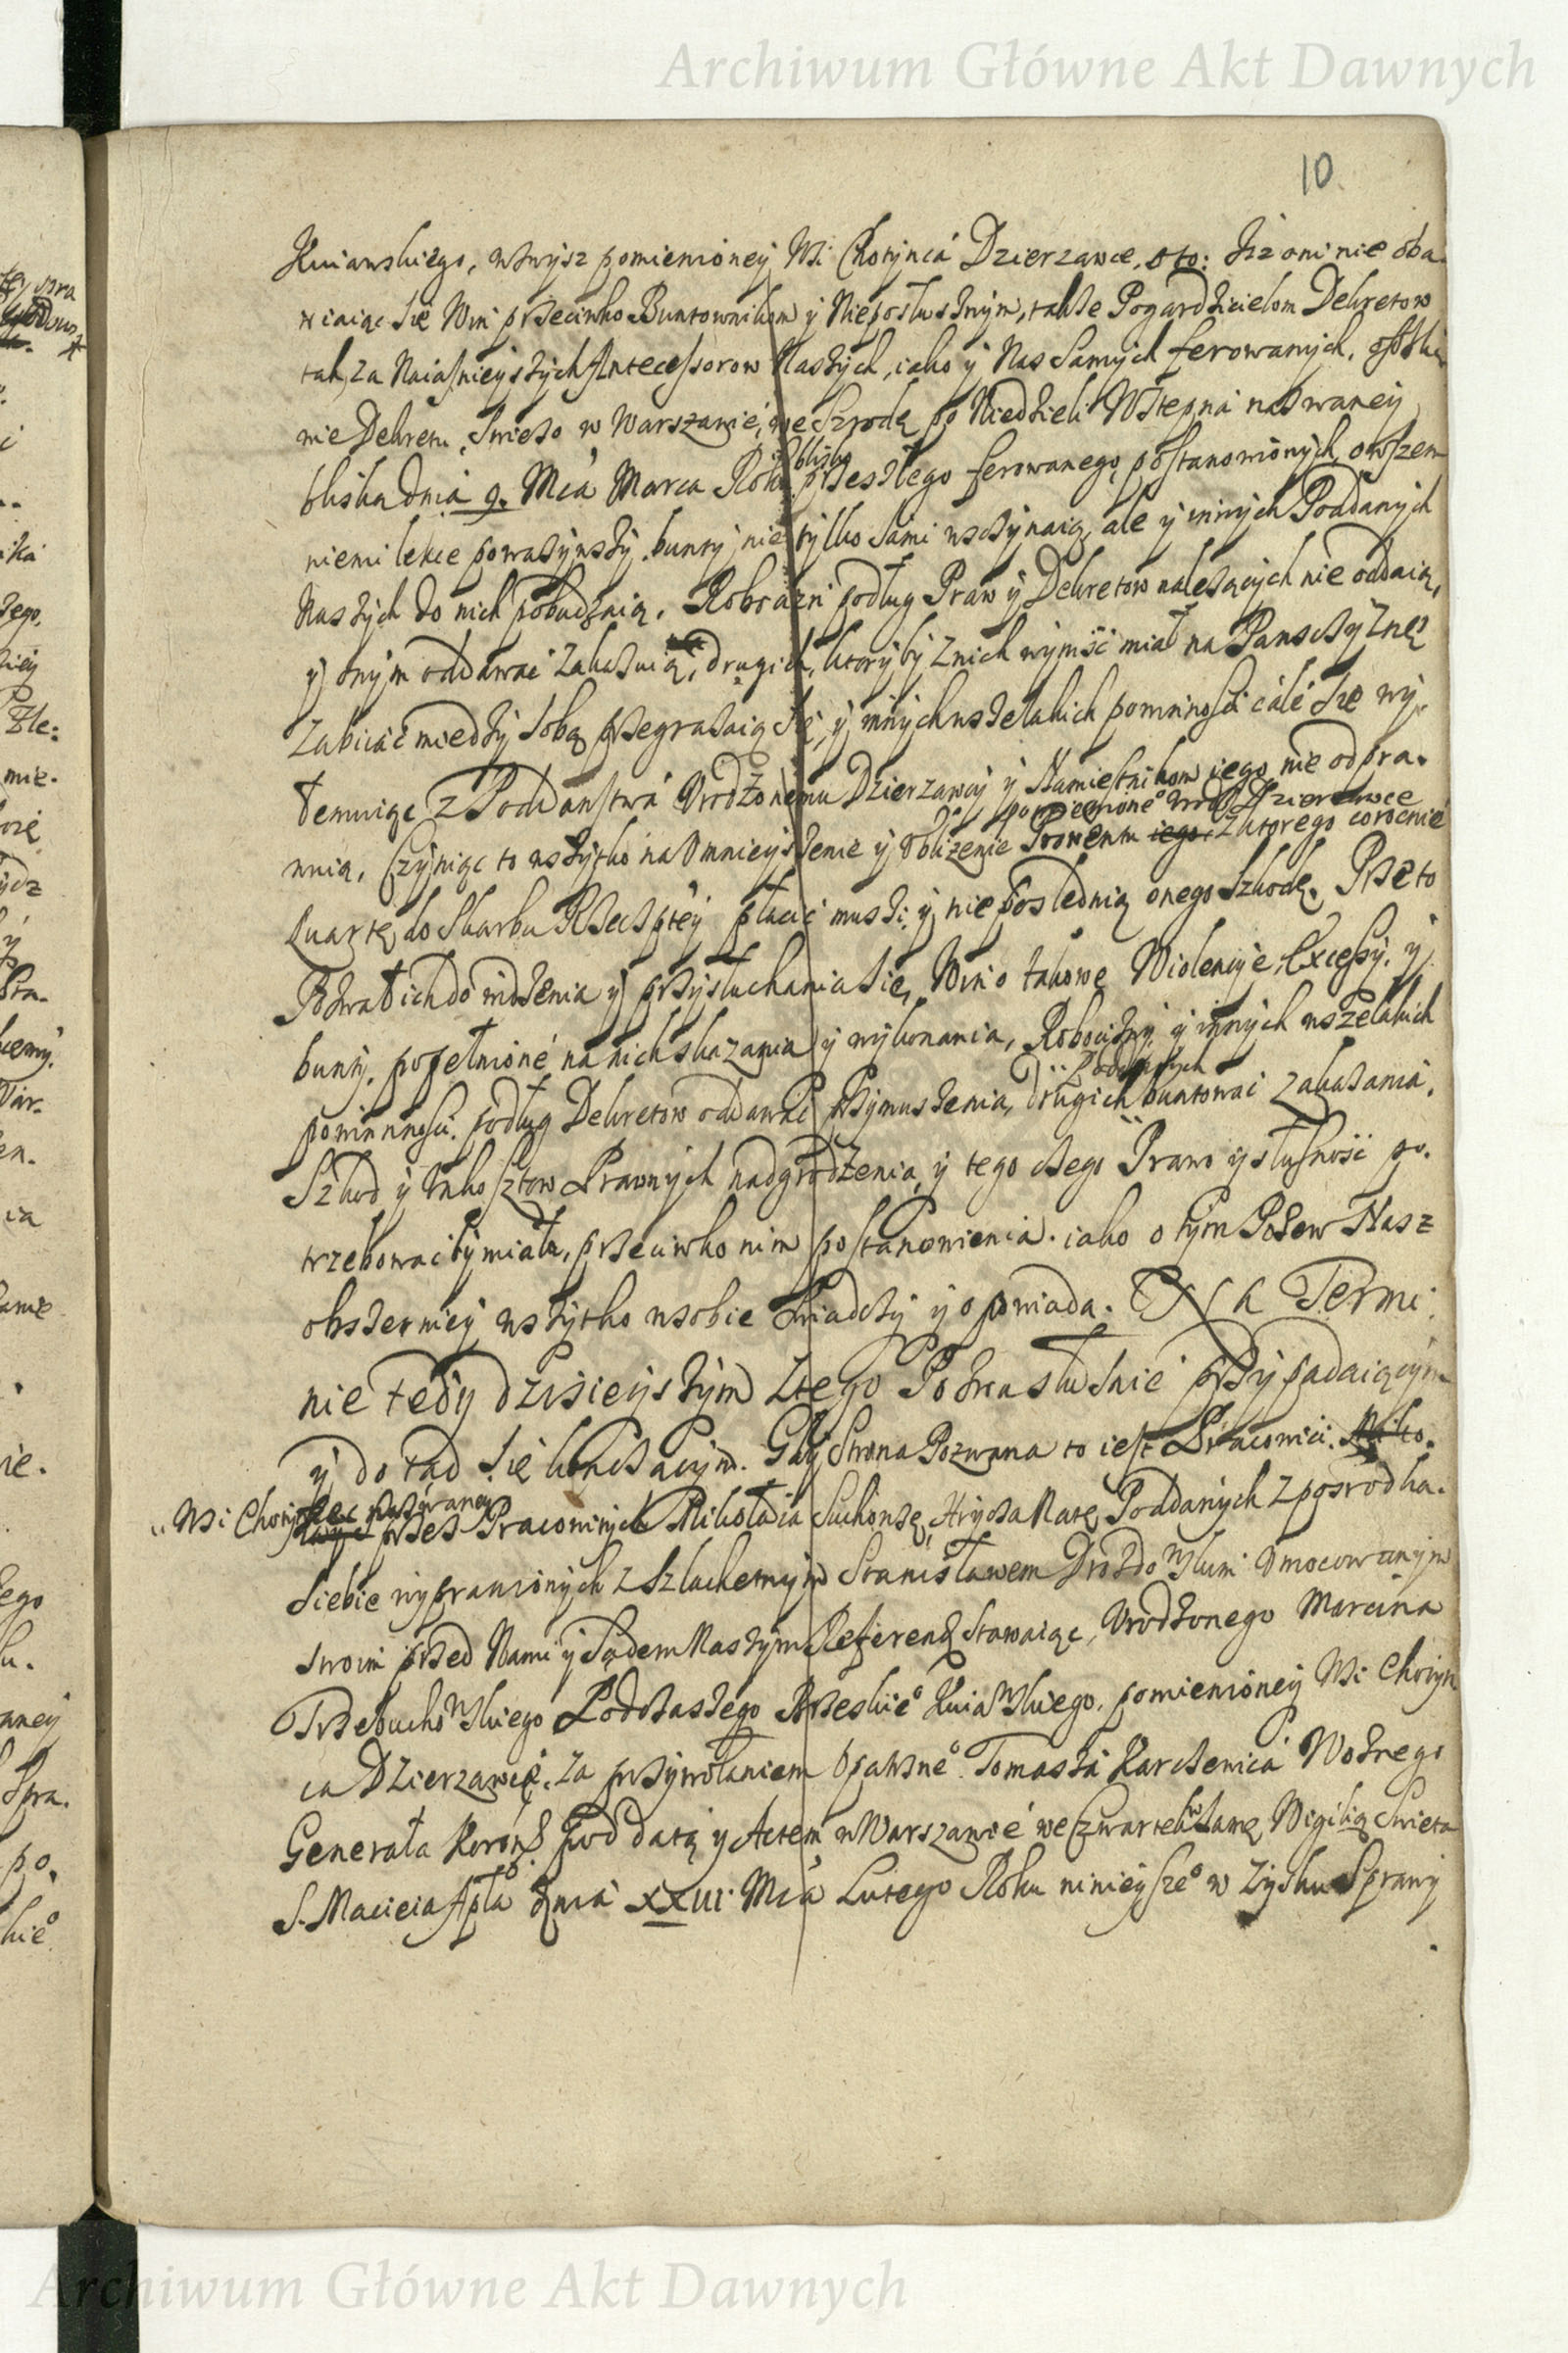 Archiwum Główne Akt Dawnych
10
Kuiawskiego, wzwysz pomienioney Wsi Chotyncá Dzierzawce, o to: Iż oni nie oba
wiaiąc się Win przeciwko Buntownikom y Nieposłusznym, także Pogardzicielom Dekretow
tak za Naiaśnieyszych Antecessorow Naszych, iako y Nas Samych ferowanych, osobli
wie Dekretu, swiezo w Warszawie, we Szrodę po Niedzieli Wstępná nazwaney
bliska dniá 9. Mcá Marca Roku blisko przeszłego ferowanego postanowionych, owszem
niemi lekce poważywszy, bunty nie tylko sami wszczynaią, ale y innych Poddanych
Naszych do nich pobudzaią, Robocizn podług Praw y Dekretow należących nie oddaią,
y onym oddawać zakazuią, drugich, ktoryby z nich wyniść miał na Pańszczyznę
zabiiać miedzy sobą przegrażaią się, y innych wszelakich powinności cále się wy
łamuiąc z Poddaństwá Urodzonemu Dzierzawcy y Namiestnikom iego nie odpra-
wuią, Czyniąc to wszytko na Umnieyszenie y Ubliżenie Prowentu iego pomienione° Urodz Dzierzawce z ktorego corocznie
kwartę do Skarbu Rzeczptey płacić musi, y nie poslednią onego szkodę. Przeto
Pozwał ich do widzenia y przysłuchania się, Win o takowe Violencye, Excessy, y
bunty, popełnione na nich skazania y wykonania, Robocizny, y innych wszelakich
powinności podług Dekretow oddawać przymuszenia, drugich Poddanych buntować zakazania,
Szkod y Nakosztow Prawnych nadgrodzenia, y tego czego Prawo y słusność po-
trzebować by miała, przeciwko nim postanowienia. iako o tym Pozew Nasz
obszerniey wszytko w sobie swiadczy y opowiada. Na Termi
nie tedy dzisieyszym z tego Pozwu słusznie przypadaiącym
y do tąd się kończącym. Gdy Strona Pozwana to iest Pracowici Miko-
Wsi Choty
łay przez Pracowitych Mikołaia Suchonzę, Hryca Karę Poddanych z posrodka
siebie wyprawionych z Szlachetnym Stanisławem Drozdowskim Umocowanym
swoim przed Nami y Sądem Naszym Referend stawaiąc, Urodzonego Marcina
Trzebuchowskiego Podczaszego Brzeskie° Kuiawskiego, pomienioney Wsi Choty
ca Dzierzawcę, za przywołaniem Opatrzne° Tomaszá Karczewicá Woznego
Generała Koron pod datą y Actem w Warszawie we Czwartek w samę Wigilią Swięta
S. Macieia Apła dniá XXIII Mcá Lutego Roku ninieysze° w Zysku Sprawy
Archiwum Główne Akt Dawnych